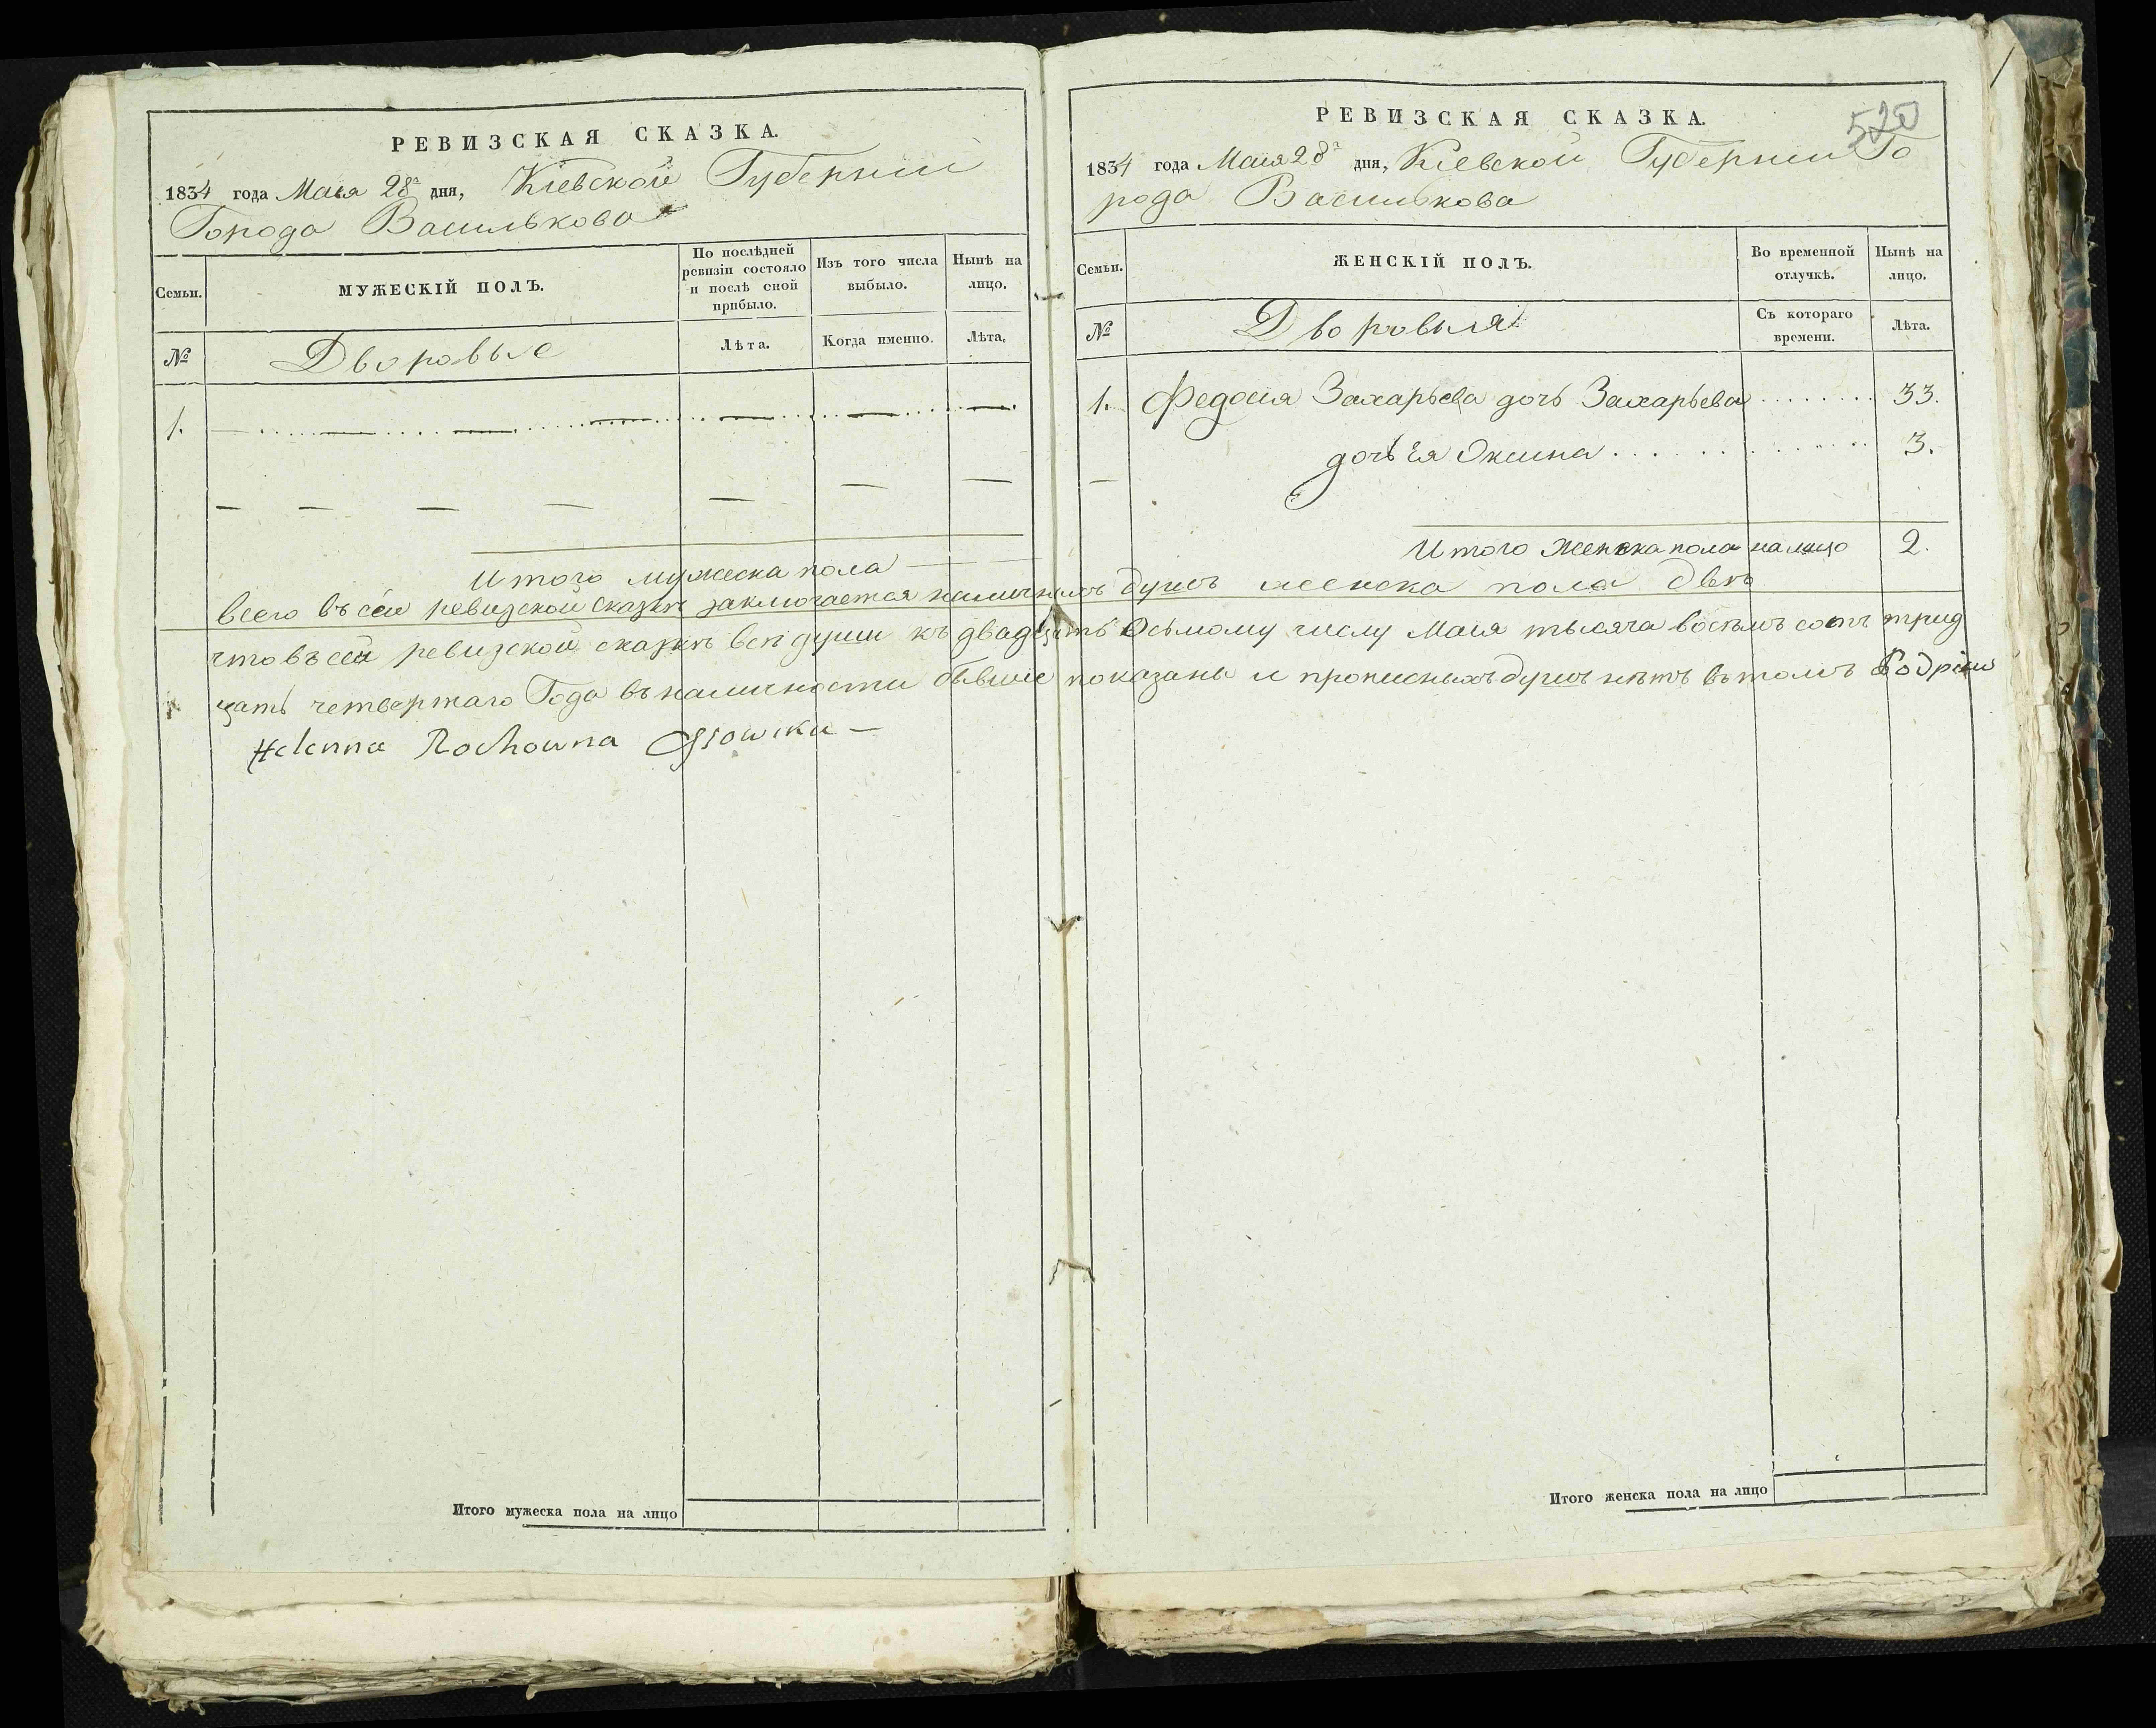 РЕВИЗСКАЯ СКАЗКА.
1834 года Маія 28го дня, Кіевской Губерніи
Города Василькова
Семьи.
МУЖЕСКІЙ ПОЛЪ.
По послѣдней ревизіи состояло и послѣ оной прибыло.
Изъ того числа выбыло.
Нынѣ на лицо.
№
Дворовые
Лѣта.
Когда именно.
Лѣта.
1.
Итого мужеска пола
Итого мужеска пола на лицо
РЕВИЗСКАЯ СКАЗКА.
520
1834 года Маія 28го дня, Кіевской Губерніи Го
рода Василькова
Семьи.
ЖЕНСКІЙ ПОЛЪ.
Во временной отлучкѣ.
Нынѣ на лицо.
№
Дворовыя
Съ котораго времени.
Лѣта.
1. Федосія Захарьева дочь Захарьева 33.
дочь ея Оксина 3.
Итого женска пола на лицо 2.
всего въ сей ревизской сказкѣ заключается наличныхъ душъ женска пола двѣ
что въ сей ревизской сказкѣ всѣ души къ двадцать осьмому числу Маія тысяча восемъ сотъ трид
цать четвертаго Года въ наличности бывшіе показаны и прописныхъ душъ нѣтъ въ томъ
Helenna Rochowna
Итого женска пола на лицо